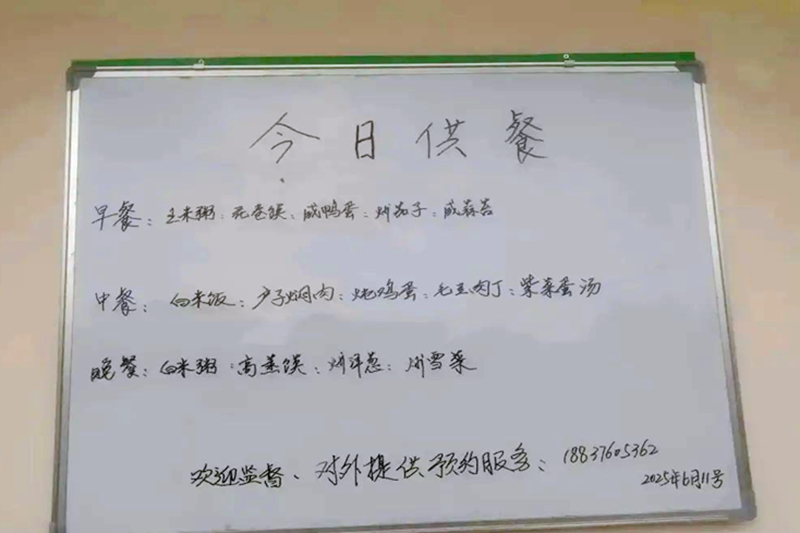 今日供餐
早餐：玉米粥：花卷馍、咸鸭蛋：炒茄子：咸蒜苔
中餐：白米饭：芦子焖肉：炖鸡蛋：毛豆肉丁：紫菜蛋汤
晚餐：白米粥：高蒸馍：炒洋葱：炒雪菜
欢迎监督、对外提供预约服务：18837605362
2025年6月11号